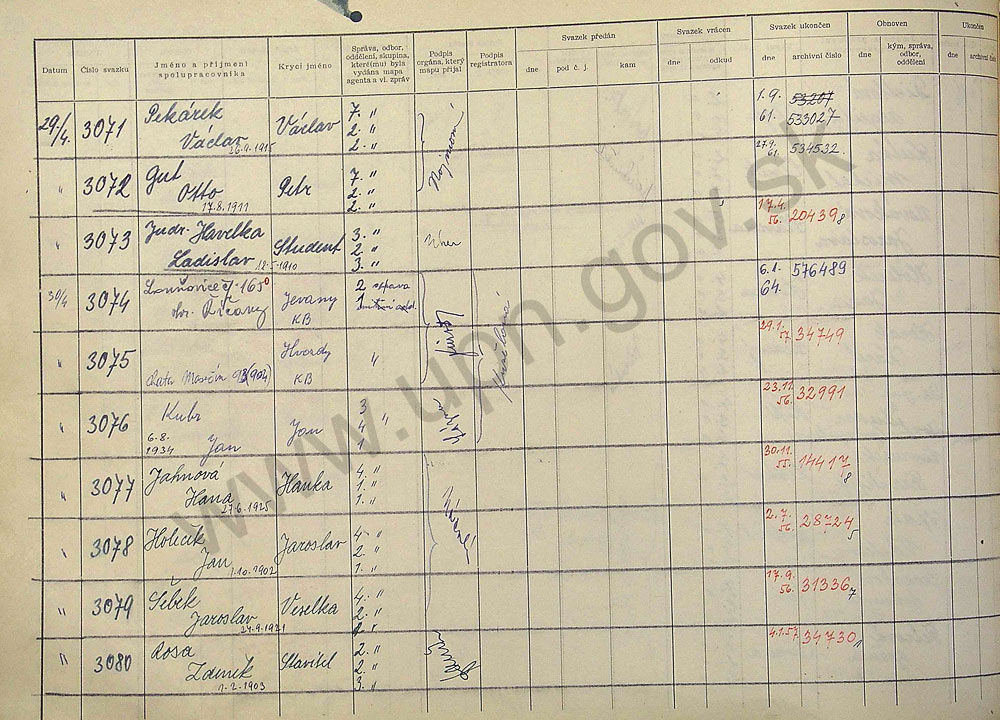 Datum
Číslo svazku
Jméno a příjmení spolupracovníka
Krycí jméno
Správa, odbor, oddělení, skupina, které(mu) byla vydána mapa agenta a vl. zpráv
Podpis orgána, který mapu přijal
Podpis registratora
Svazek předán
dne
pod č. j.
kam
Svazek vrácen
dne
odkud
Svazek ukončen
dne
archivní číslo
Obnoven
dne
kým, správa, odbor, oddělení
Ukončen
dne
29/4. 3071 Pekárek Václav 7. „ 1.9. 53207
Václav 26.9.1915 2. „ 61. 533027
2. „
" 3072 Gut Petr 7. „ 27.9. 534532
Otto 17.8.1911 2. „ 61.
2. „
" 3073 Judr. Havelka Student 3. „ 17.4. 20439 8
Ladislav 18.5.1910 2. „ 56.
3. „
30/4 3074 Louňovice čj. 165 Jevany 2 správa 6.1. 576489
okr. Říčany KB 1 64.
" 3075 Hvozdy „ 29.1. 34749
chata KB 57.
" 3076 Kubr Jan 3 23.11. 32991
6.8. 1934 Jan 4 „ 56.
1
" 3077 Jahnová Hanka 4. „ 30.11. 14417 8
Hana 27.6.1925 1. „ 55.
1. „
" 3078 Holeček Jaroslav 4. „ 2.7. 28724 5
Jan 1.10.1902 2. „ 56.
1. „
" 3079 Šebek Veselka 4. „ 17.9. 31336 7
Jaroslav 24.9.1921 2. „ 56.
" 3080 Rosa Stavitel 2. „ 4.1.57 34730 „
Zdeněk 1.2.1903 2. „
3. „
www.upn.gov.sk